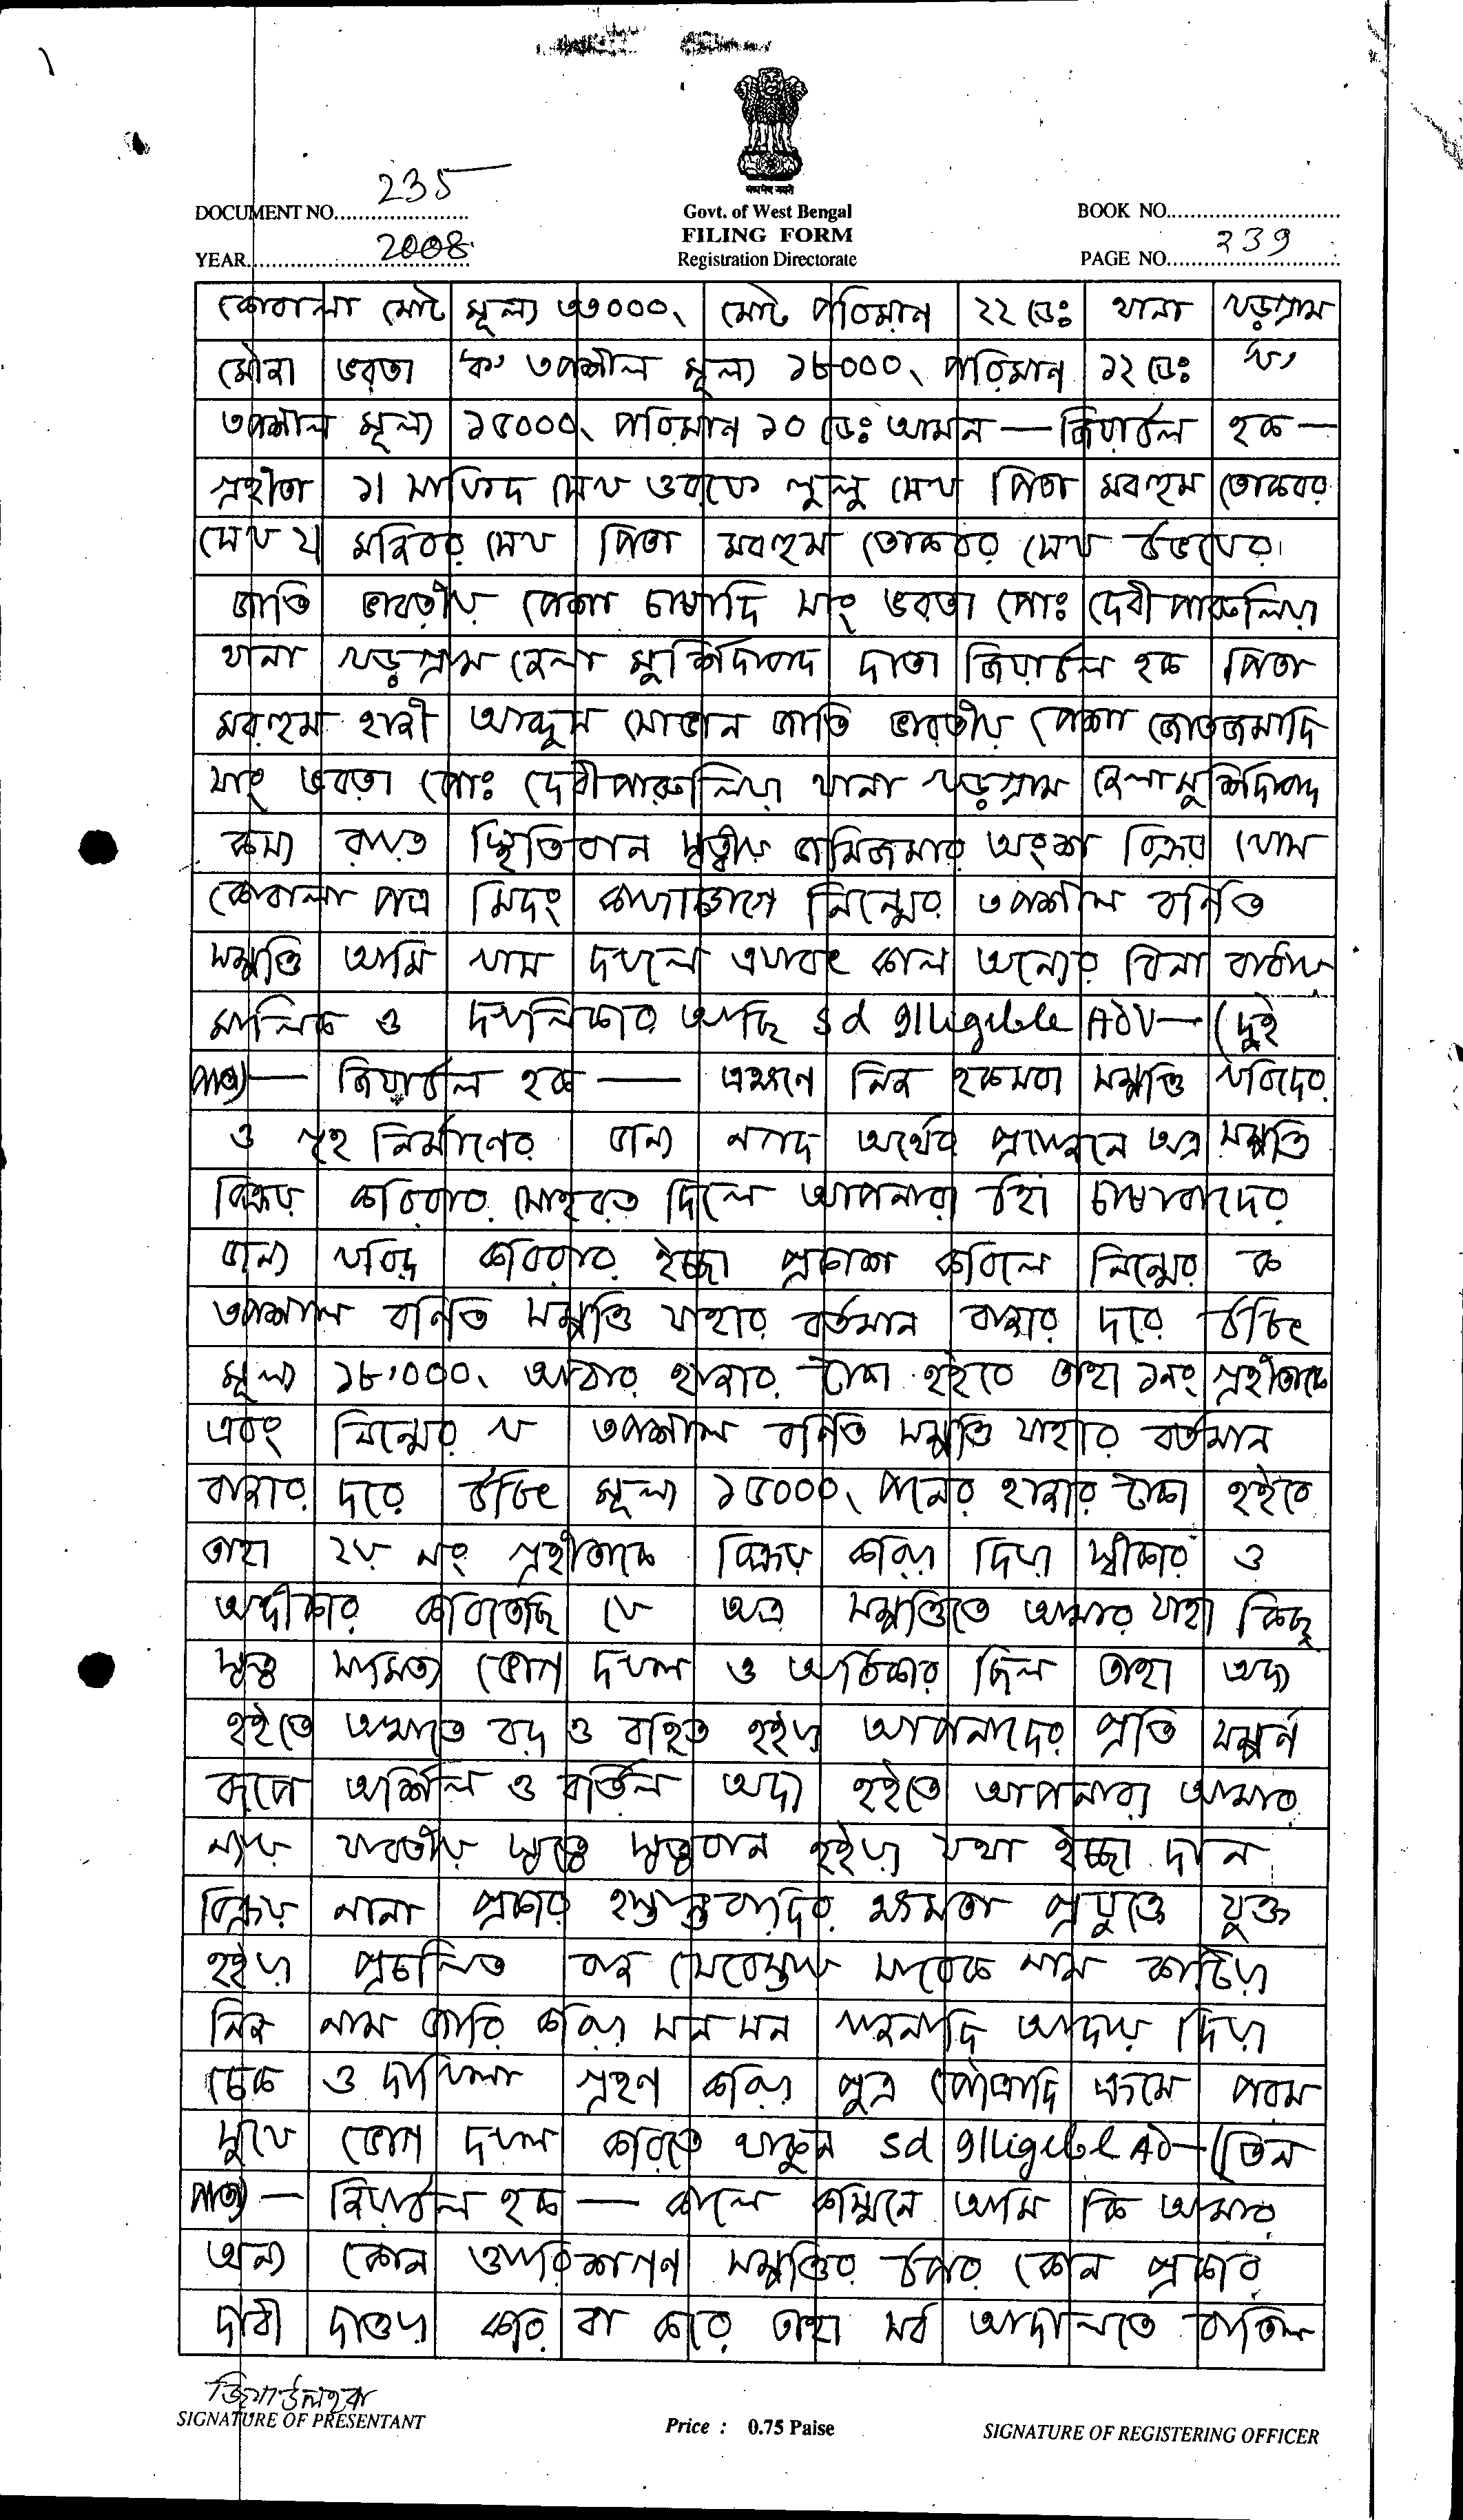 235
DOCUMENT NO.
Govt. of West Bengal
BOOK NO.
FILING FORM
YEAR 2008
Registration Directorate
PAGE NO. 239
কোবালা মোট মূল্য ৩৩০০০৲ মোট পরিমান ২২ ডেঃ থানা খড়গ্রাম
মৌজা ভরতা 'ক' তপশীল মূল্য ১৮০০০৲ পরিমান ১২ ডেঃ 'খ'
তপশীল মূল্য ১৫০০০৲ পরিমান ১০ ডেঃ আমন — জিয়াউল হক —
গ্রহীতা ১। সাজিদ সেখ ওরফে লুলু সেখ পিতা মরহুম তোকবর
সেখ ২। মজিবর সেখ পিতা মরহুম তোকবর সেখ উভয়ের।
জাতি ভারতীয় পেশা চাষাদি সাং ভরতা পোঃ দেবীপারুলিয়া
থানা খড়গ্রাম জেলা মুর্শিদাবাদ দাতা জিয়াউল হক পিতা
মরহুম হাজী আব্দুস সোভান জাতি ভারতীয় পেশা জোতজমাদি
সাং ভরতা পোঃ দেবীপারুলিয়া থানা খড়গ্রাম জেলা মুর্শিদাবাদ
কস্য রায়ত স্থিতিবান স্বত্বীয় জমিজমার অংশ বিক্রয় খোস
কোবালা পত্র মিদং কার্য্যাঞ্চাগে নিম্নের তপশীল বর্নিত
সম্পত্তি আমি খাস দখলে এযাবৎ কাল অন্যের বিনা বাধায়
মালিক ও দখলিকার আছি Sd Illigible ADV — (দুই
পাতা) — জিয়াউল হক — এক্ষনে নিজ হকমবা সম্পত্তি খরিদের
ও গৃহ নির্মাণের জন্য নগদ অর্থের প্রয়োজনে অত্র সম্পত্তি
বিক্রয় করিবার সোহরত দিলে আপনারা উহা চাষাবাদের
জন্য খরিদ করিবার ইচ্ছা প্রকাশ করিলে নিম্নের ক
তপশীল বর্নিত সম্পত্তি যাহার বর্তমান বাজার দরে উচিৎ
মূল্য ১৮,০০০৲ আঠার হাজার টাকা হইবে তাহা ১নং গ্রহীতাকে
এবং নিম্নের খ তপশীল বর্নিত সম্পত্তি যাহার বর্তমান
বাজার দরে উচিৎ মূল্য ১৫০০০৲ পনের হাজার টাকা হইবে
তাহা ২য় নং গ্রহীতাকে বিক্রয় করিয়া দিয়া স্বীকার ও
অঙ্গীকার করিতেছি যে অত্র সম্পত্তিতে আমার যাহা কিছু
স্বত্ব স্যামিত্য ভোগ দখল ও অধিকার ছিল তাহা অদ্য
হইতে আমাতে বদ ও বহিত হইয়া আপনাদের প্রতি সম্পূর্ন
রূপে অর্শিল ও বর্তিল অদ্য হইতে আপনারা আমার
ন্যায় যাবতীয় স্বত্বে স্বত্ববান হইয়া যথা ইচ্ছা দান
বিক্রয় নানা প্রকার হস্তান্তরাদির ক্ষমতা প্রযুক্তে যুক্ত
হইয়া প্রচলিত রাজ সেরেস্তায় সাবেক নাম কাটিয়া
নিজ নাম জারি করিয়া সন সন খাজনাদি আদায় দিয়া
চেক ও দাখিলা গ্রহণ করিয়া পুত্র পৌত্রাদি ক্রমে পরম
সুখে ভোগ দখল করিতে থাকুন Sd Illigible AD — (তিন
পাতা) — জিয়াউল হক — কালে কস্মিনে আমি কি আমার
অন্য কোন ওয়ারিশগণ সম্পত্তির উপর কোন প্রকার
দাবী দাওয়া করি বা করে তাহা সর্ব আদালতে বাতিল
জিয়াউল হক
SIGNATURE OF PRESENTANT
Price : 0.75 Paise
SIGNATURE OF REGISTERING OFFICER